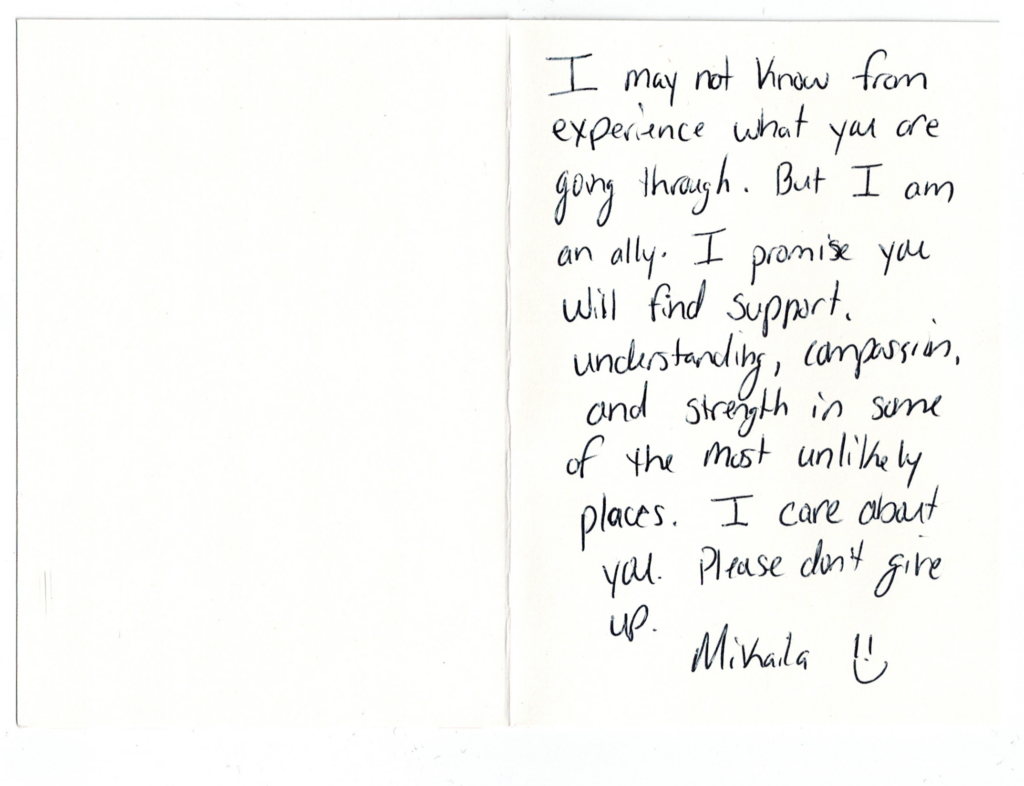 I may not know from
experience what you are
going through. But I am
an ally. I promise you
will find support,
understanding, compassion,
and strength in some
of the most unlikely
places. I care about
you. Please don't give
up.
Mikaila